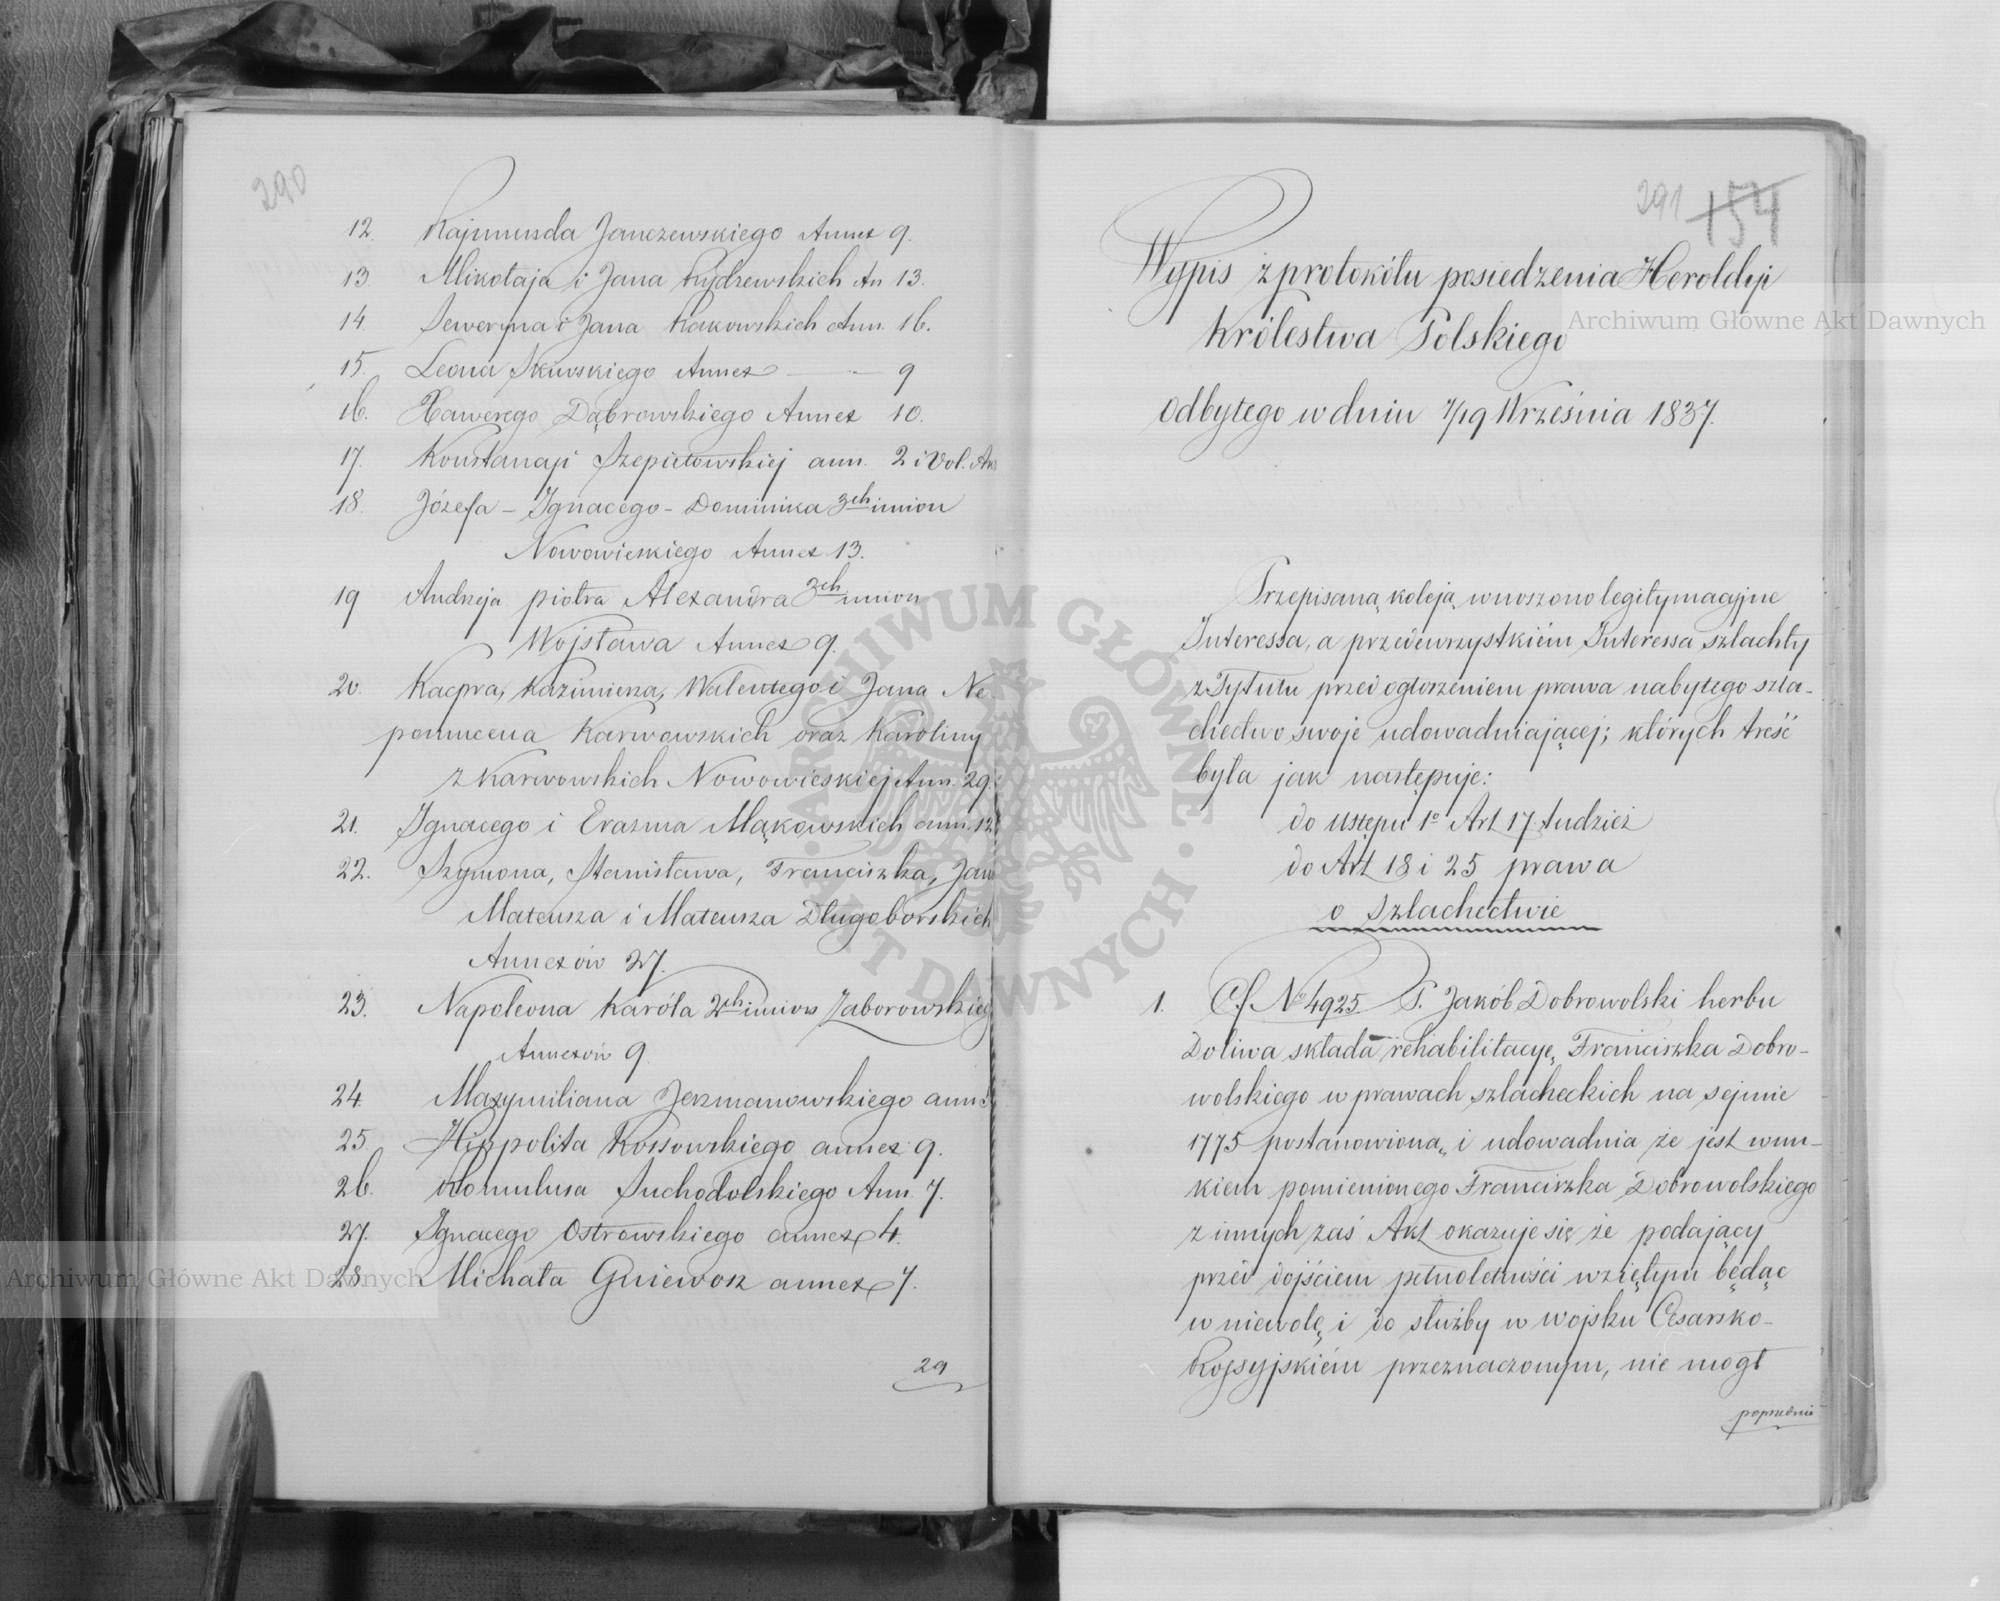 290
12. Rajmunda Janczewskiego Annex 9.
13. Mikołaja i Jana Rydzewskich An 13.
14. Seweryna i Jana Kakowskich Ann. 16.
15. Leona Skiwskiego Annex — 9
16. Xawerego Dąbrowskiego Annex 10.
17. Konstancji Szepietowskiej ann. 2 i Vol. An
18. Józefa – Ignacego – Dominika 3ch imion
Nowowieskiego Annex 13.
19 Andrzeja piotra Alexandra 3ch imion
Wojsława Annex 9.
20. Kacpra, Kazimierza, Walentego i Jana Ne-
pomucena Karwowskich oraz Karoliny
z Karwowskich Nowowieskiej Ann. 29.
21. Ignacego i Erazma Mąkowskich ann. 12
22. Szymona, Stanisława, Franciszka, Jana
Mateusza i Mateusza Długoborskich
Annexów 27.
23. Napoleona Karóla 2ch imion Zaborowskieg
Annexów 9.
24. Maxymiliana Jerzmanowskiego ann
25. Hippolita Kossowskiego annex 9.
26. Romulusa Suchodolskiego Ann. 7.
27. Ignacego Ostrowskiego annex 4.
28. Michała Gniewosz annex 7.
29
291 154
Wypis z protokółu posiedzenia Heroldyi
Królestwa Polskiego
odbytego w dniu 7/19 Września 1837.
Przepisaną koleją wnoszono legitymacyjne
Interessa, a przedewszystkiém Interessa szlachty
z Tytułu przed ogłoszeniem prawa nabytego szla-
chectwo swoje udowadniającej; których treść
była jak następuje:
do ustępu 1o Art 17 tudzież
do Art 18 i 25 prawa
o Szlachectwie
1. Cf No 4925. P. Jakób Dobrowolski herbu
Doliwa składa rehabilitacyę Franciszka Dobro-
wolskiego w prawach szlacheckich na sejmie
1775 postanowioną, i udowadnia że jest wnu-
kiem pomienionego Franciszka Dobrowolskiego
z innych zaś Akt okazuje się że podający
przed dojściem pełnoletności wziętym będąc
w niewolę i do służby w wojsku Cesarsko-
Rossyjskiém przeznaczonym, nie mogł
poprzednio
Archiwum Główne Akt Dawnych
Archiwum Główne Akt Dawnych
· ARCHIWUM GŁÓWNE · AKT DAWNYCH ·